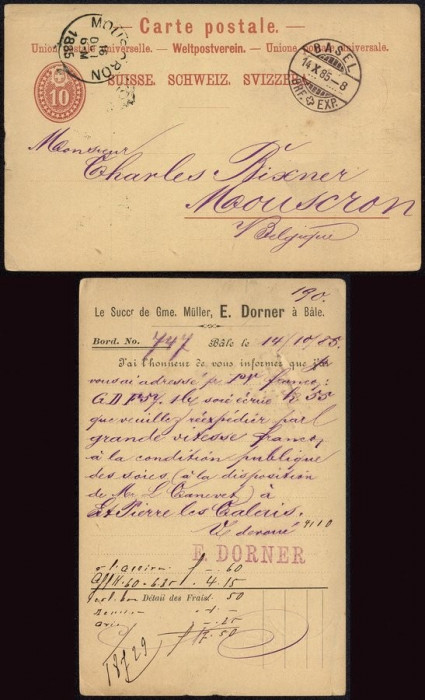 Carte postale.
Union postale universelle. — Weltpostverein. — Unione postale universale.
SUISSE. SCHWEIZ. SVIZZERA.
10
MOUSCRON
16
6 M
1885
BASEL
14 X 85.-8
BRF. EXP.
Monsieur
Charles Bixner
Mouscron
Belgique
190.
Le Succr de Gme. Müller, E. Dorner à Bâle.
Bord. No. 747 Bâle le 14/10/85.
J'ai l'honneur de vous informer que je
vous ai adressé pr franco:
G.D. 1 soie écrue 55
que veuillez réexpédier par
grande vitesse franco,
à la condition publique
des soies (à la disposition
de Mr. L. Canevet) à
St Pierre les Calais.
9110
E. DORNER
60
4.15
Détail des Frais. 50
25
50
18729